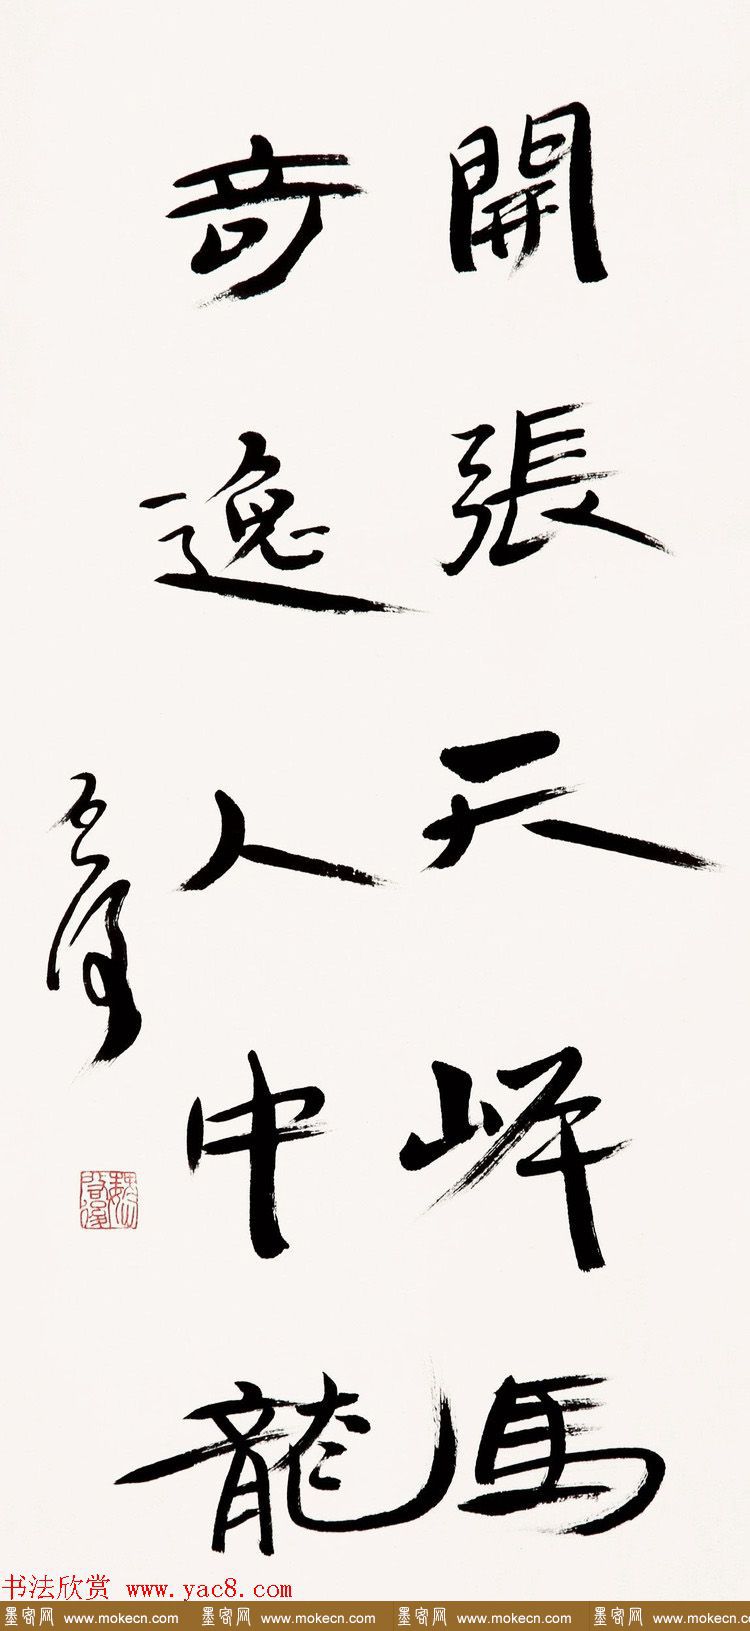 開張天岸馬
奇逸人中龍
启後
魏啟後
书法欣赏 www.yac8.com
墨客网 www.mokecn.com 墨客网 www.mokecn.com 墨客网 www.mokecn.com 墨客网 www.mokecn.com